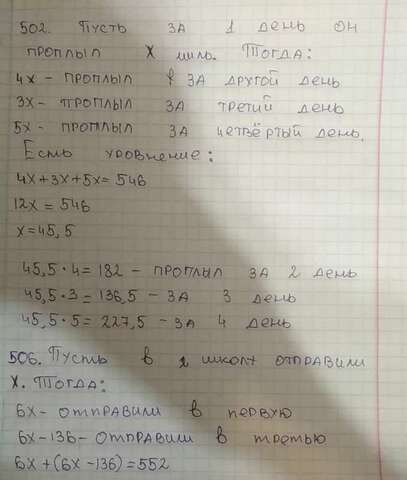 502. Пусть за 1 день он
проплыл х миль. Тогда:
4х - проплыл за другой день
3х - проплыл за третий день
5х - проплыл за четвёртый день.
Есть уровнение:
4х+3х+5х=546
12х = 546
х=45,5
45,5·4=182 - проплыл за 2 день
45,5·3=136,5 - за 3 день
45,5·5=227,5 - за 4 день
506. Пусть в 2 школу отправили
х. Тогда:
6х - отправили в первую
6х-136- отправили в третью
6х+(6х-136)=552